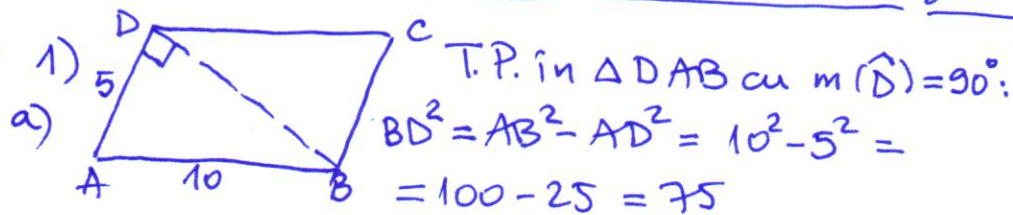 1)
a)
D
C
5
A
10
B
T.P. în △DAB cu m(D̂)=90°:
BD² = AB² - AD² = 10² - 5² =
= 100 - 25 = 75